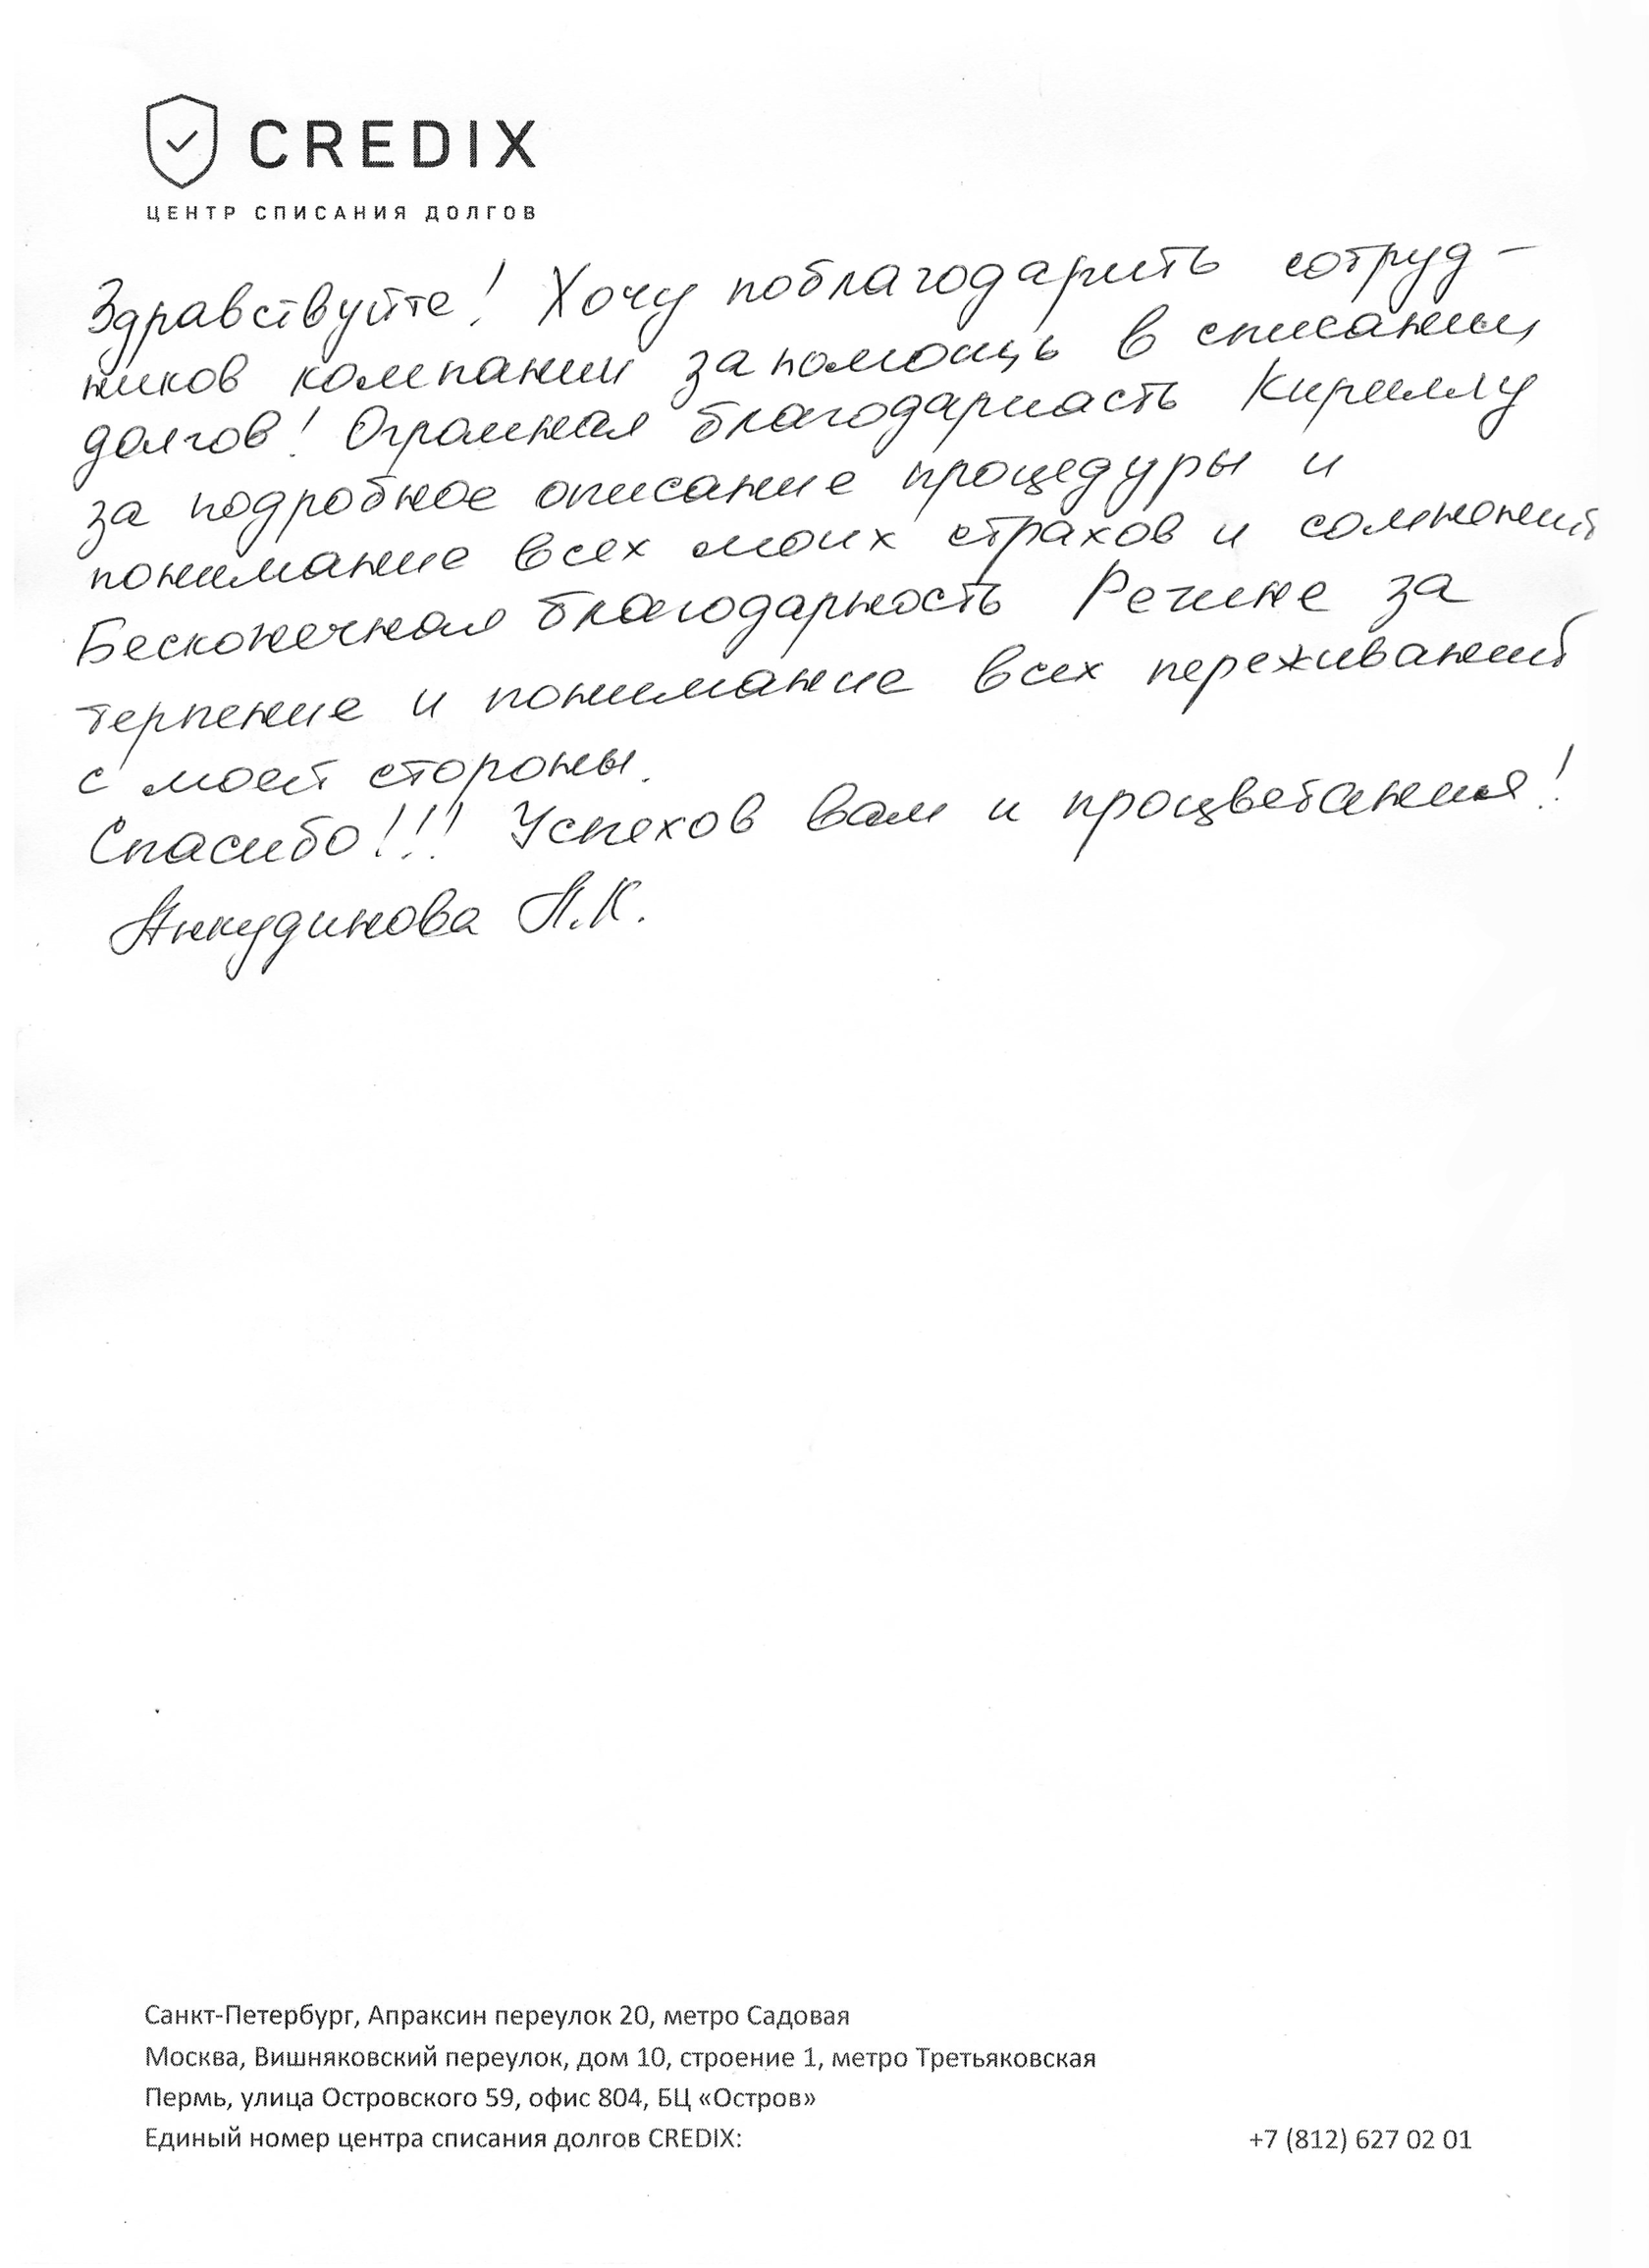 CREDIX
ЦЕНТР СПИСАНИЯ ДОЛГОВ
Здравствуйте! Хочу поблагодарить сотруд-
ников компании за помощь в списании
долгов! Огромная благодарность Кириллу
за подробное описание процедуры и
понимание всех моих страхов и сомнений
Бесконечная благодарность Регине за
терпение и понимание всех переживаний
с моей стороны.
Спасибо!!! Успехов вам и процветания!
Анкудинова А.К.
Санкт-Петербург, Апраксин переулок 20, метро Садовая
Москва, Вишняковский переулок, дом 10, строение 1, метро Третьяковская
Пермь, улица Островского 59, офис 804, БЦ «Остров»
Единый номер центра списания долгов CREDIX: +7 (812) 627 02 01